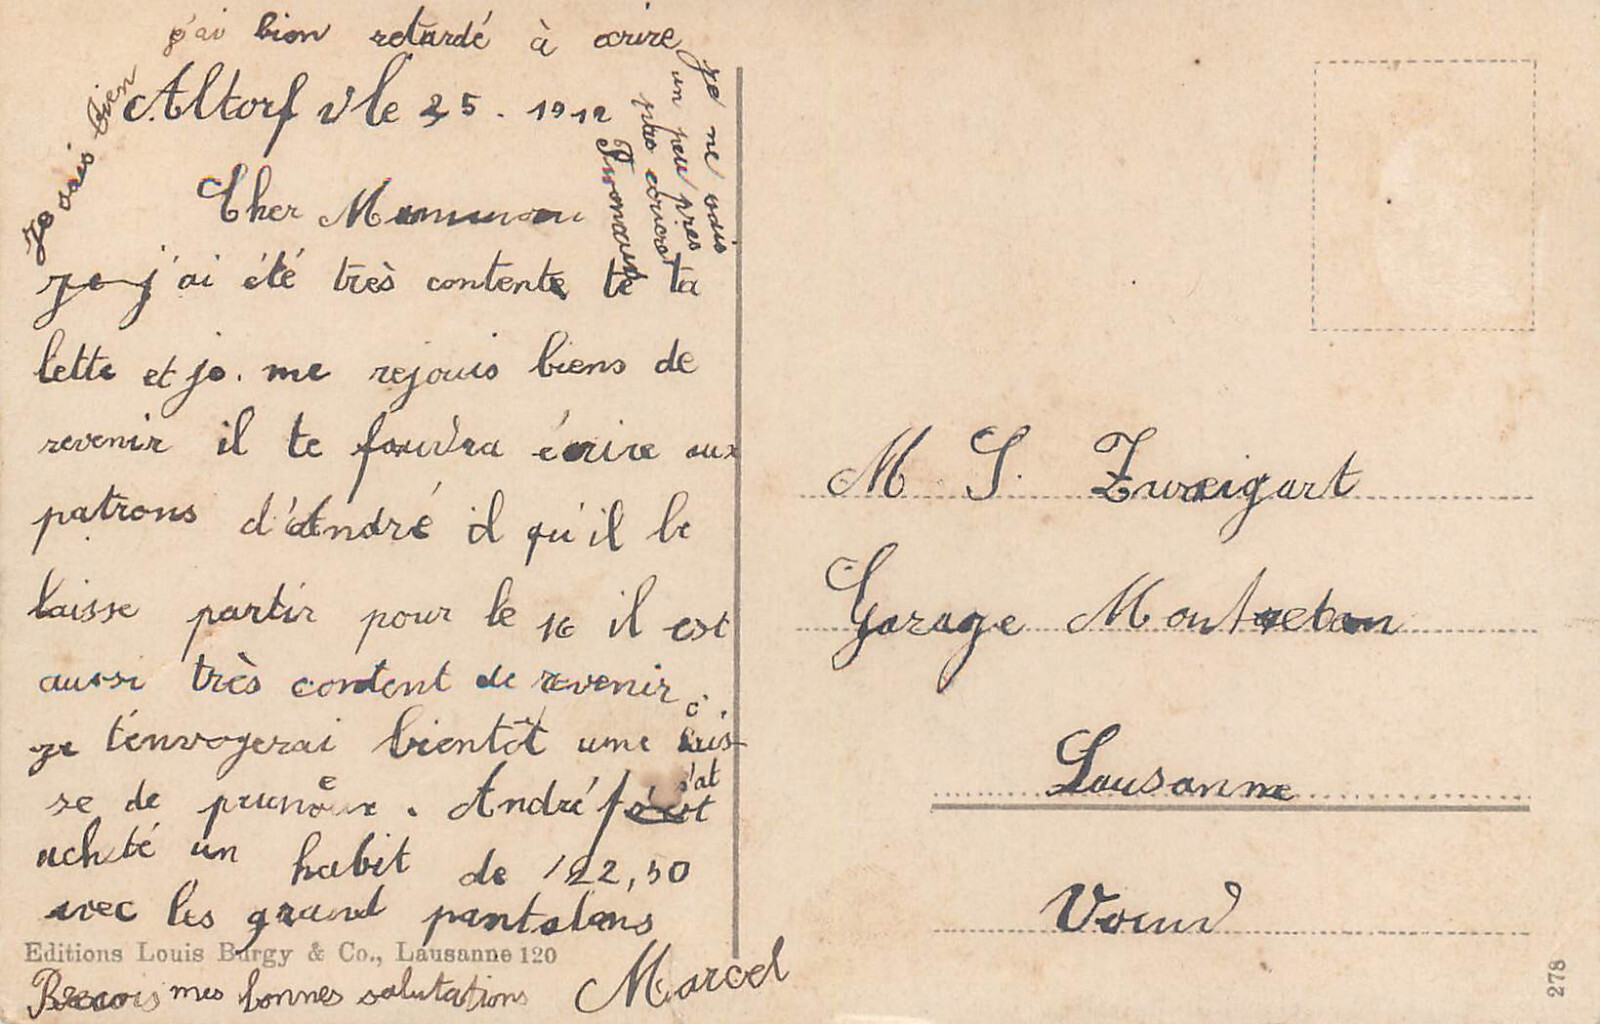 j'ai bien retardé à ecrire
Je sais bien
je ne sais
un peu pres
plus ecrire
Altorf le 25. 1912
Cher Mamman
j'ai été très contente te ta
lette et je. me rejouis biens de
revenir il te faudra écrire aux
patrons d'André il qu'il le
laisse partir pour le 16 il est
aussi très content de revenir
je t'envogerai bientôt une cais-
se de pruneaux. André s'at
acheté un habit de 22,50
avec les grand pantalans
Editions Louis Burgy & Co., Lausanne 120
Recois mes bonnes salutations Marcel
M S. Zweigart
Garage Montreban
Lausanne
Vaud
278